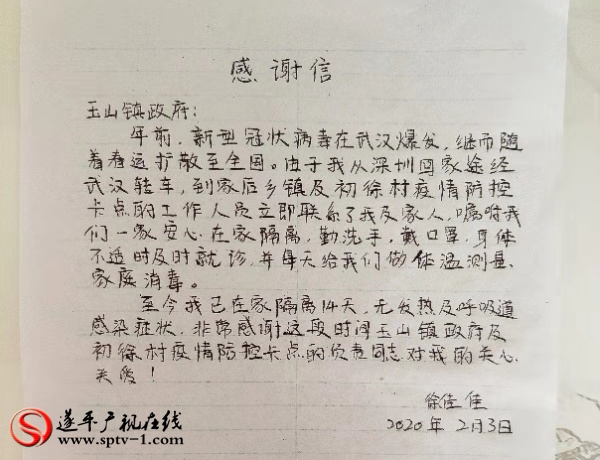 感谢信
玉山镇政府：
年前，新型冠状病毒在武汉爆发，继而随
着春运扩散至全国。由于我从深圳回家途经
武汉转车，到家后乡镇及初徐村疫情防控
卡点的工作人员立即联系了我及家人，嘱咐我
们一家安心在家隔离，勤洗手，戴口罩，身体
不适时及时就诊，并每天给我们做体温测量、
家庭消毒。
至今我已在家隔离14天，无发热及呼吸道
感染症状，非常感谢这段时间玉山镇政府及
初徐村疫情防控卡点的负责同志对我的关心
关爱！
徐佳佳
2020年2月3日
遂平广视在线
www.sptv-1.com